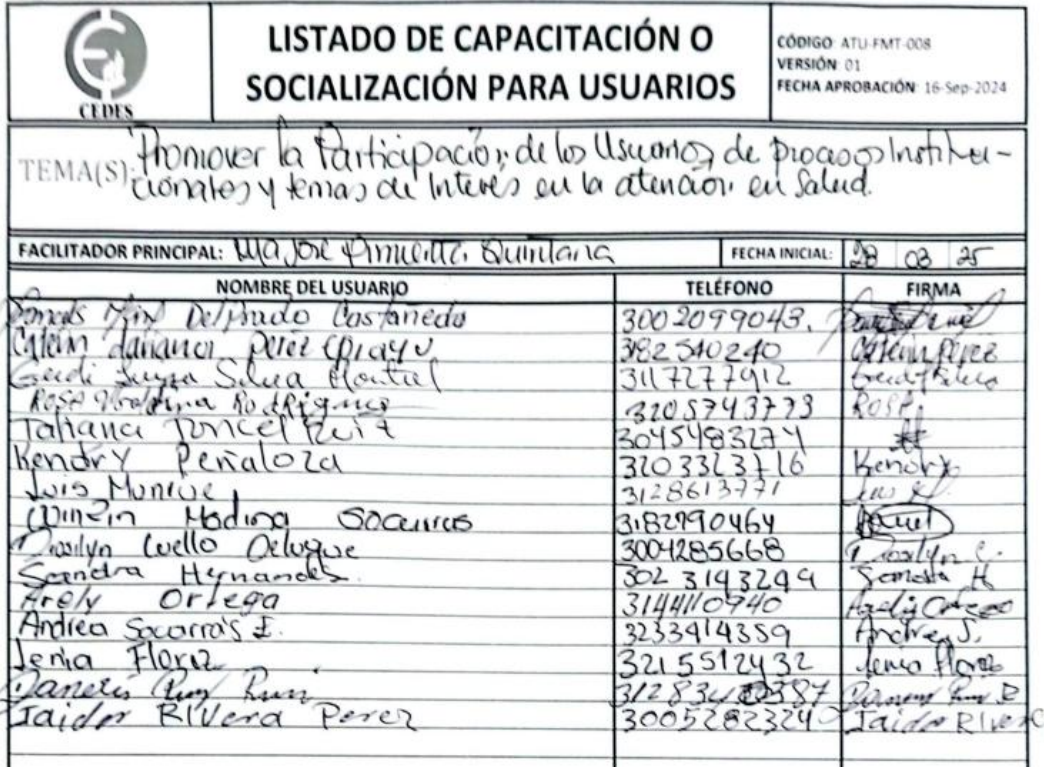 CEDES
LISTADO DE CAPACITACIÓN O
SOCIALIZACIÓN PARA USUARIOS
CÓDIGO: ATU-FMT-008
VERSIÓN: 01
FECHA APROBACIÓN: 16-Sep-2024
TEMA(S): Promover la Participación de los Usuarios de procesos Institu-
cionales y temas de Interés en la atención en Salud.
FACILITADOR PRINCIPAL: Ma Jose Pimienta Quintana FECHA INICIAL: 28 03 25
NOMBRE DEL USUARIO TELÉFONO FIRMA
Del Prado Castañeda 3002099043.
perez 3182540240 perez
Luyza Silva Montiel 3117277912
Rosa Rodriguez 3205743773 ROSA
Tatiana Poncel Ruiz 3045483274
Kendry Peñaloza 3203323716 Kendry
Luis Munive 3128613771
Medina Socarras 3182790464
Cuello Deluque 3004285668
Sandra Hernandez 302 3143299 Sandra H
Arely Ortega 3144110940
Andrea Socarrás I. 3233414359 Andrea S.
Jenia Florez 3215512432 Jenia Florez
Daneris
Jaider Rivera Perez 3005282324 Jaider Rivera